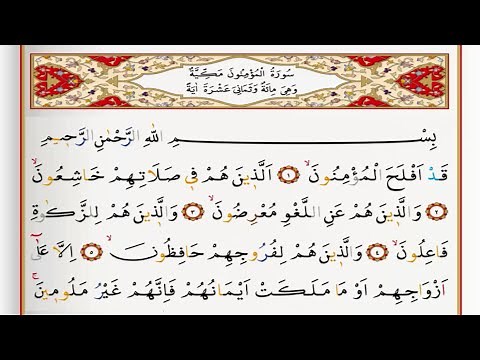 سُورَةُ الْمُؤْمِنُونَ مَكِّيَّةٌ
وَهِيَ مِائَةٌ وَثَمَانِيَ عَشْرَةَ اٰيَةً
بِسْمِ اللّٰهِ الرَّحْمٰنِ الرَّحٖيمِ
قَدْ اَفْلَحَ الْمُؤْمِنُونَۙ ﴿١﴾ اَلَّذٖينَ هُمْ فٖي صَلَاتِهِمْ خَاشِعُونَۙ
﴿٢﴾ وَالَّذٖينَ هُمْ عَنِ اللَّغْوِ مُعْرِضُونَۙ ﴿٣﴾ وَالَّذٖينَ هُمْ لِلزَّكٰوةِ
فَاعِلُونَۙ ﴿٤﴾ وَالَّذٖينَ هُمْ لِفُرُوجِهِمْ حَافِظُونَۙ ﴿٥﴾ اِلَّا عَلٰٓى
اَزْوَاجِهِمْ اَوْ مَا مَلَكَتْ اَيْمَانُهُمْ فَاِنَّهُمْ غَيْرُ مَلُومٖينَۚ